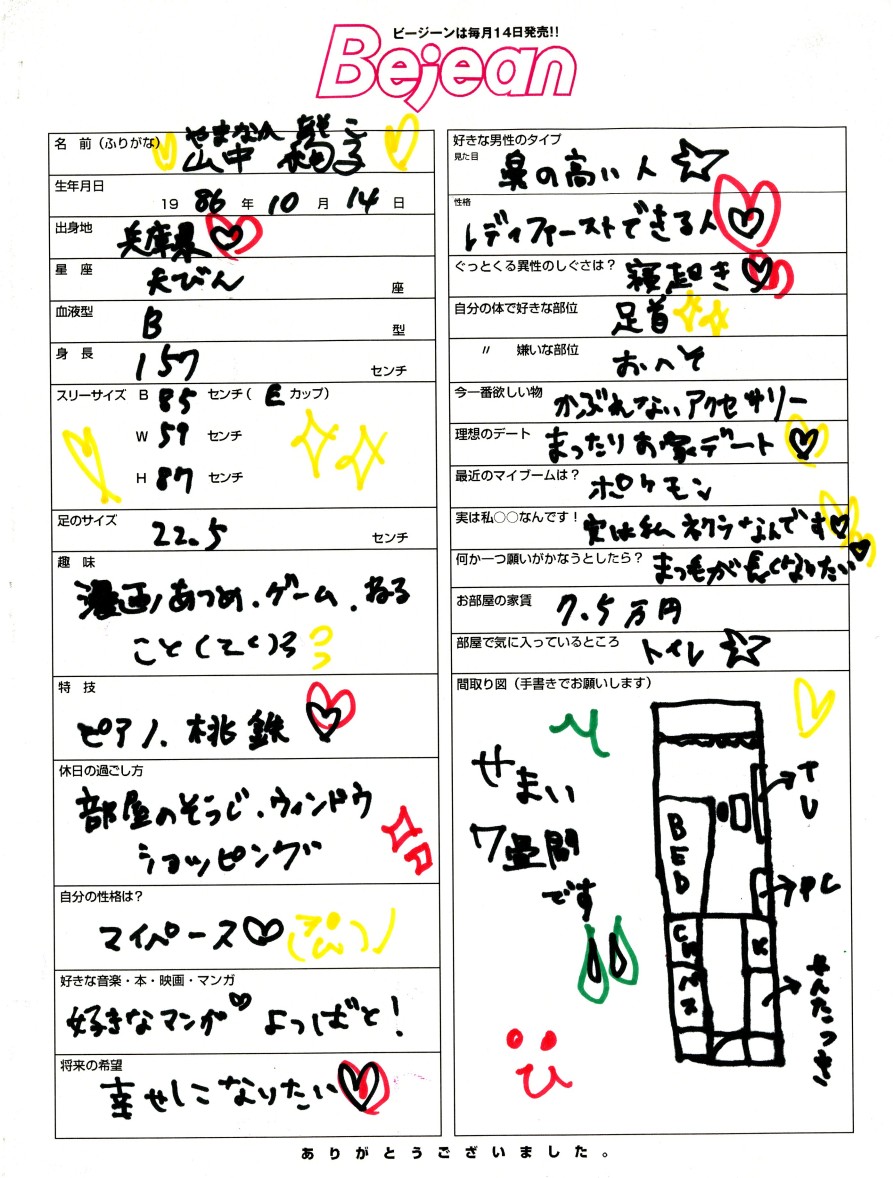 ビージーンは毎月14日発売!!
Bejean
名 前(ふりがな)
やまなか
山中 子
生年月日
19 86 年 10 月 14 日
出身地
兵庫県
星 座
天びん 座
血液型
B 型
身 長
157 センチ
スリーサイズ B 85 センチ( E カップ)
W 59 センチ
H 87 センチ
足のサイズ
22.5 センチ
趣 味
漫画あつめ・ゲーム・ねる
こと
特 技
ピアノ、桃鉄
休日の過ごし方
部屋のそうじ・ウィンドウ
ショッピング
自分の性格は?
マイペース
好きな音楽・本・映画・マンガ
好きなマンガ よつばと!
将来の希望
幸せになりたい
好きな男性のタイプ
見た目
鼻の高い人
性格
レディファーストできる人
ぐっとくる異性のしぐさは?
寝起き
自分の体で好きな部位
足首
〃 嫌いな部位
おへそ
今一番欲しい物
かぶれないアクセサリー
理想のデート
まったりお家デート
最近のマイブームは?
ポケモン
実は私○○なんです!
実は私ネクラなんです
何か一つ願いがかなうとしたら?
まつ毛が長くなりたい
お部屋の家賃
7.5万円
部屋で気に入っているところ
トイレ
間取り図(手書きでお願いします)
せまい
7畳間
です
TV
BED
PC
K
せんたっき
ありがとうございました。